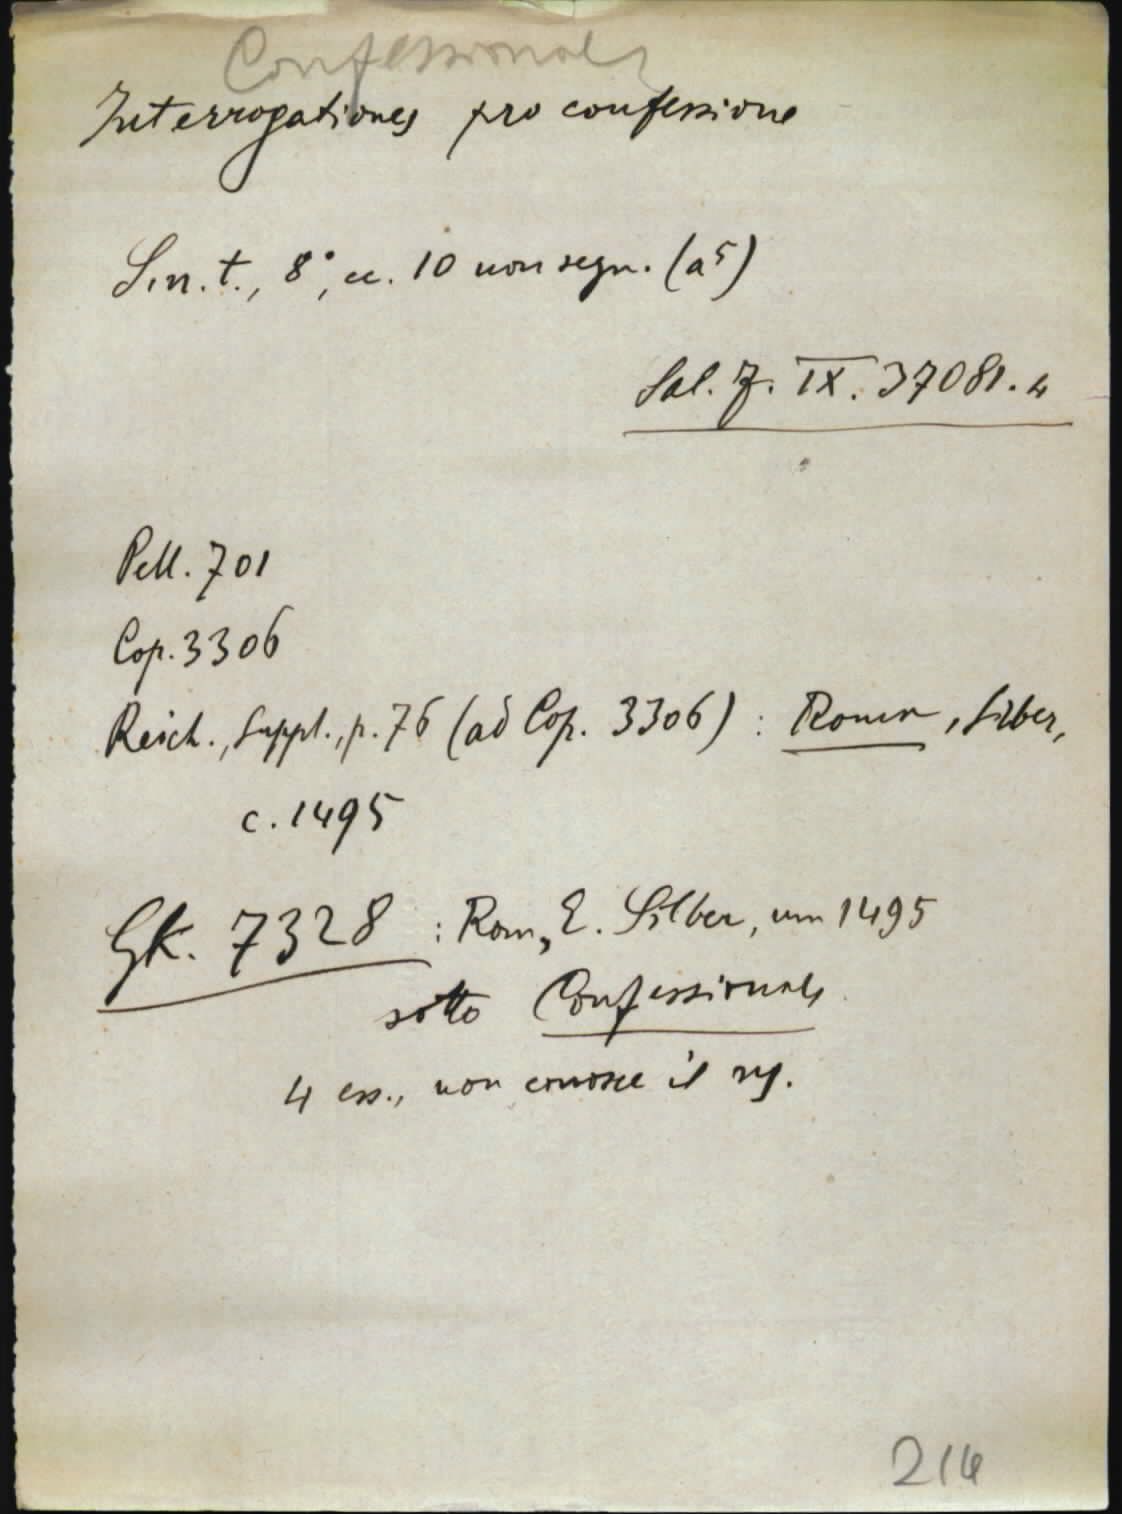 Confessionale
Interrogationes pro confessione
S.n.t., 8°, cc. 10 non segn. (a⁵)
Sal. Z. IX. 37081.4
Pell. 701
Cop. 3306
Reich., Suppl., p. 76 (ad Cop. 3306) : Roma, Silber,
c. 1495
Gk. 7328 : Rom, E. Silber, um 1495
sotto Confessionale
4 es., non conosce il ns.
214